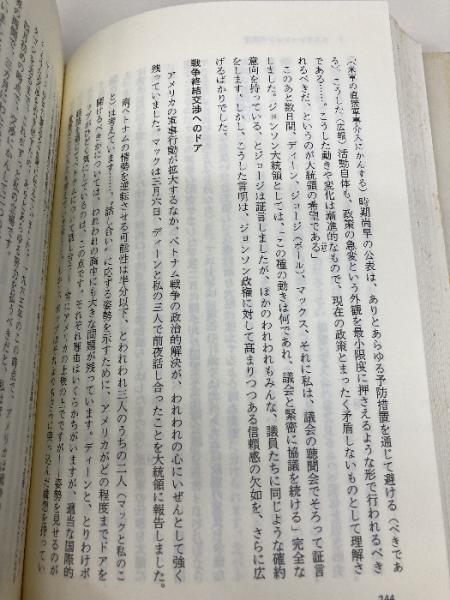 （米軍の直接軍事介入にかんする）時期尚早の公表は、ありとあらゆる予防措置を通じて避ける（べきであ
る）。こうした（広報）活動自体も、政策の急変という外観を最小限度に押さえるような形で行われるべき
である……。こうした動きや変化は漸進的なもので、現在の政策とまったく矛盾しないものとして理解さ
れるべきだ、というのが大統領の希望である」
このあと数日間、ディーン、ジョージ（ボール）、マックス、それに私は、議会の聴聞会でそろって証言
しました。ジョンソン大統領としては、「この種の動きは何であれ、議会と緊密に協議を続ける」完全な
意向を持っている、とジョージは証言しましたが、ほかのわれわれもみんな、議員たちに同じような確約
をします。しかし、こうした言明は、ジョンソン政権に対して高まりつつある信頼感の欠如を、さらに広
げるばかりでした。
戦争終結交渉へのドア
アメリカの軍事行動が拡大するなか、ベトナム戦争の政治的解決が、われわれの心にいぜんとして強く
残っていました。マックは三月六日、ディーンと私の三人で前夜話し合ったことを大統領に報告しました。
南ベトナムの情勢を逆転させる可能性は半分以下、とわれわれ三人のうちの二人（マックと私のこ
と）は考えています……。“話し合い”に応ずる姿勢を示すために、アメリカがどの程度までドアを
開けるべきかについては、われわれの胸中にも大きな問題が残っています。ディーンと、とりわけボ
ブがひどく気にしているのは、この点です。それぞれ理由はいくらかちがいますが、適当な国際的
244